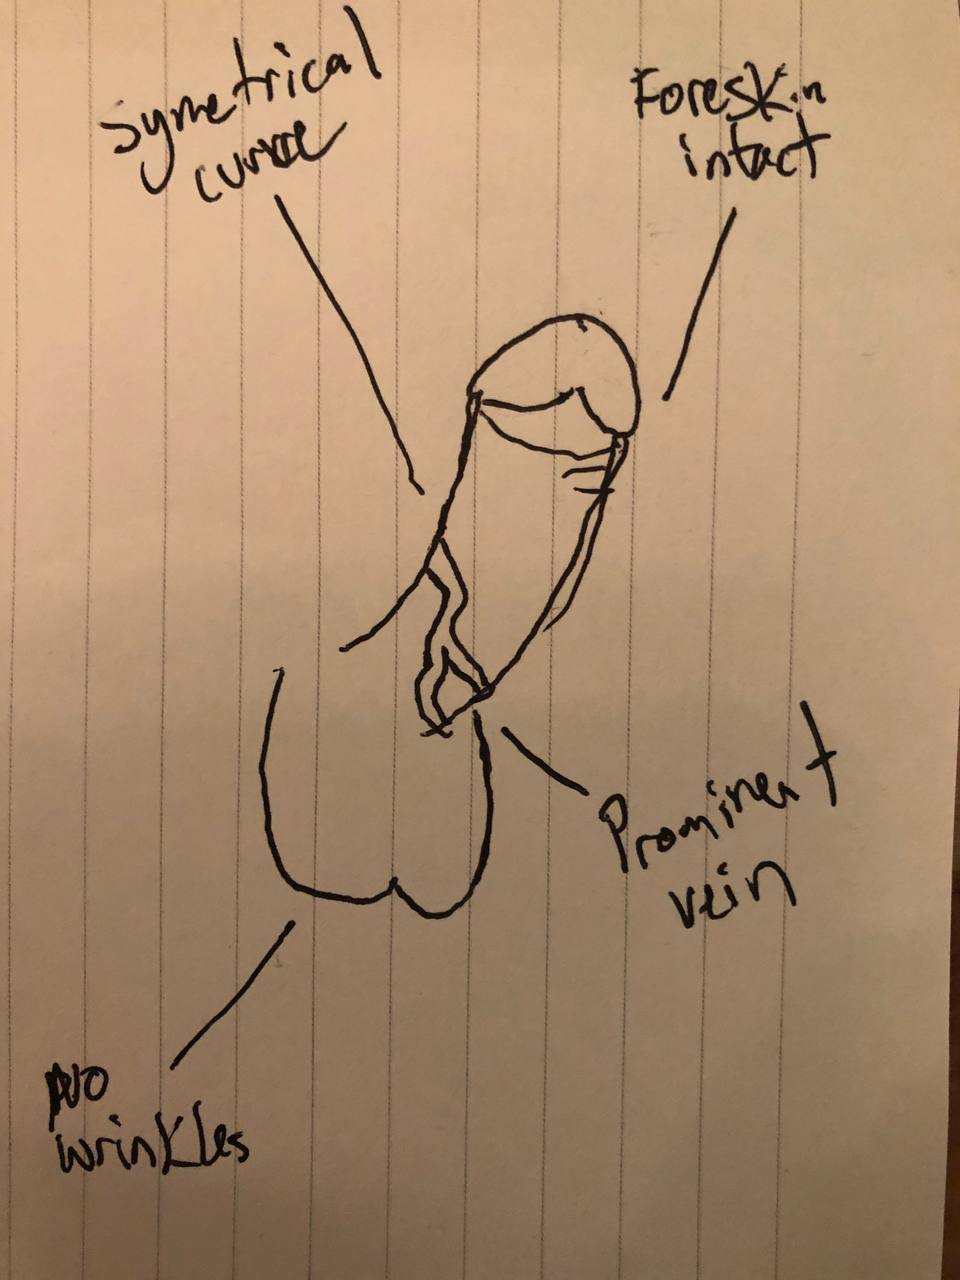 symetrical
curve
Foreskin
intact
Prominent
vein
No
wrinkles